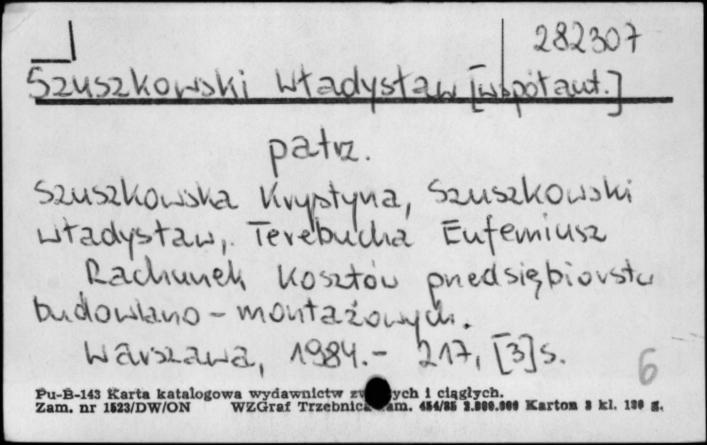 282307
Szuszkowski Władysław [współaut.]
patrz.
Szuszkowska Krystyna, Szuszkowski
Władysław, Terebucha Eufemiusz
Rachunek kosztów przedsiębiorstw
budowlano-montażowych.
Warszawa, 1984.- 217, [3]s.
6
Pu-B-143 Karta katalogowa wydawnictw zwartych i ciągłych.
Zam. nr 1523/DW/ON WZGraf Trzebnica zam. 454/85 2.800.000 Karton 3 kl. 120 g.